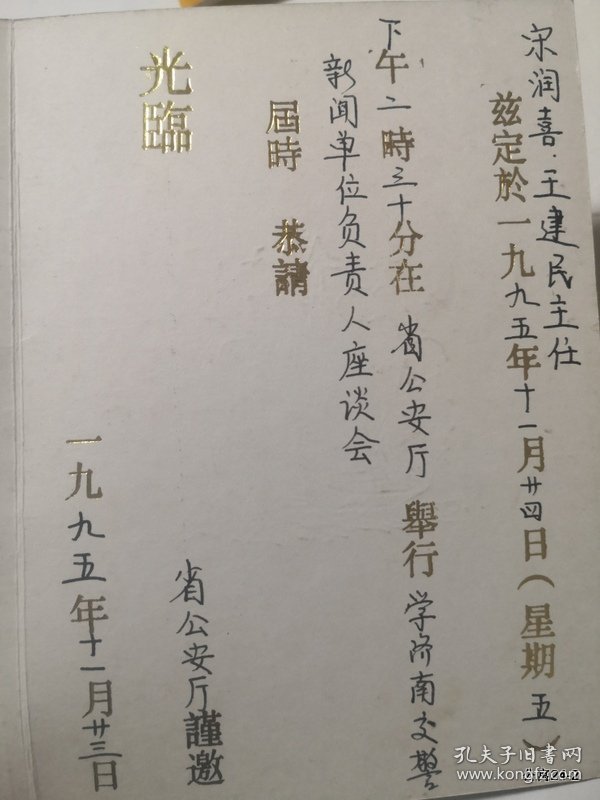 宋润喜.王建民主任
兹定於一九九五年十一月廿四日(星期五)
下午二時三十分在省公安厅舉行学济南交警
新闻单位负责人座谈会
屆時 恭請
光臨
省公安厅謹邀
一九九五年十一月廿三日
孔夫子旧书网
www.kongfz.com